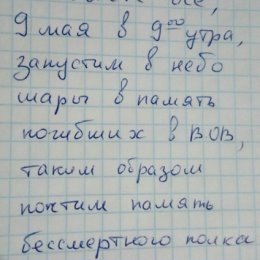 9 мая в 9⁰⁰ утра,
запустим в небо
шары в память
погибших в ВОВ,
таким образом
почтим память
бессмертного полка